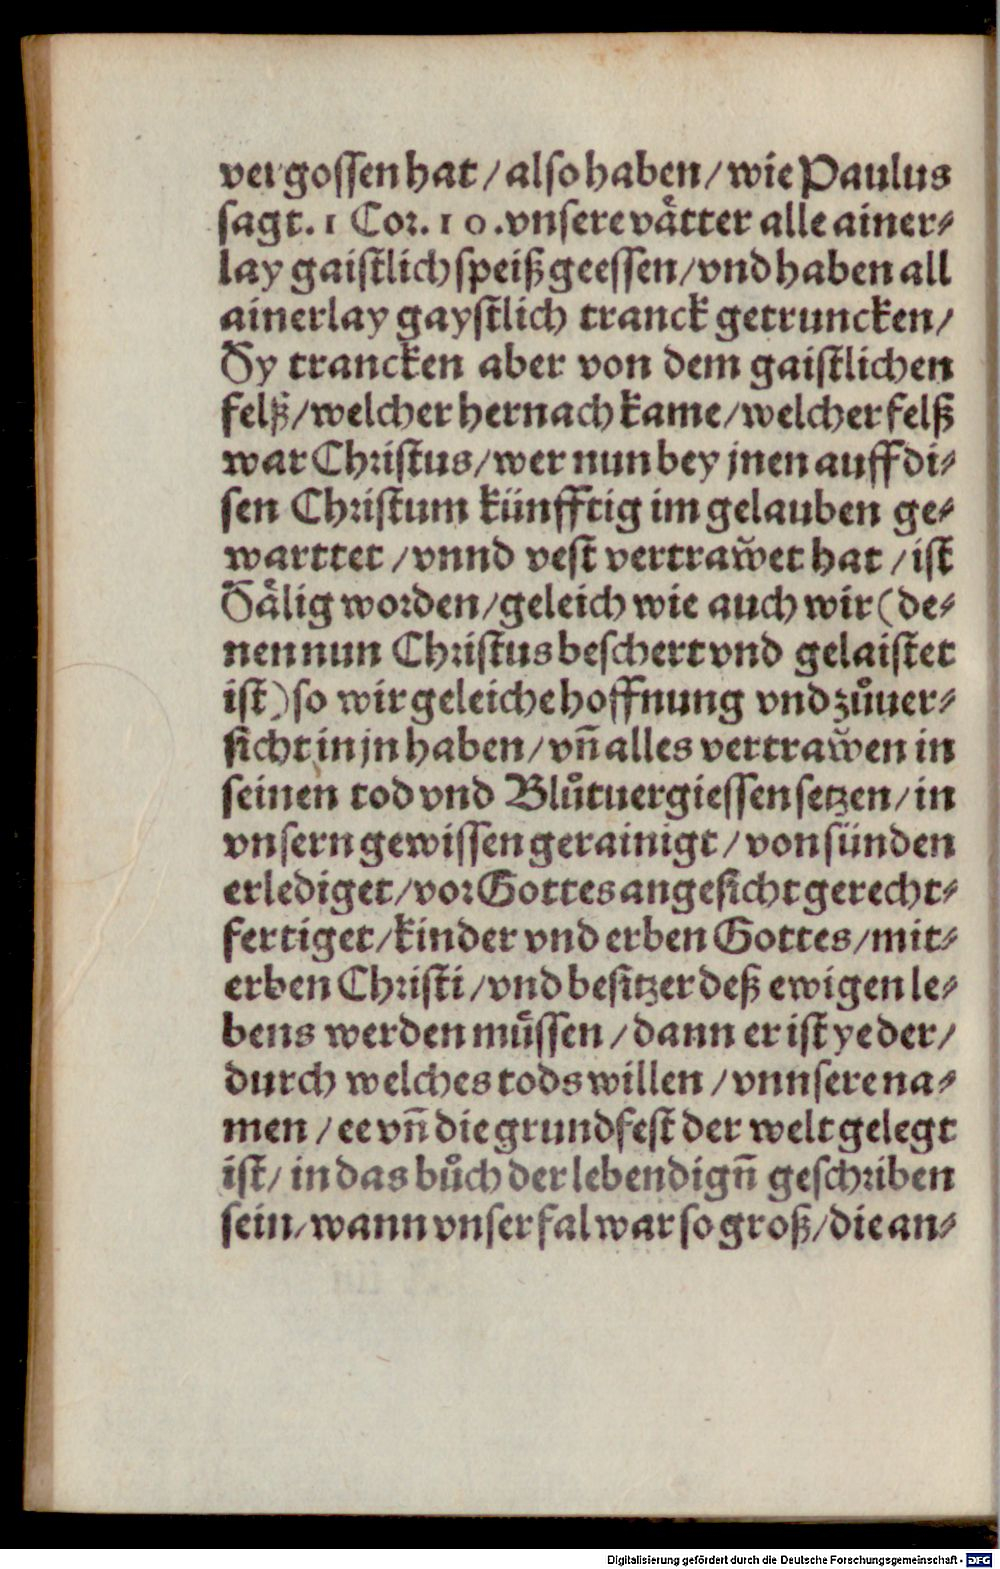 vergossen hat / also haben / wie Paulus
sagt. 1 Cor. 1 0 .vnsere vaͤtter alle ainer⸗
lay gaistlich speiß geessen / vnd haben all
ainerlay gaystlich tranck getruncken /
Sy trancken aber von dem gaistlichen
felß / welcher hernach kame / welcher felß
war Christus / wer nun bey jnen auff di⸗
sen Christum künfftig im gelauben ge⸗
warttet / vnnd vest vertraw̃et hat / ist
Saͤlig worden / geleich wie auch wir (de⸗
nen nun Christus beschert vnd gelaistet
ist) so wir geleiche hoffnung vnd zuͦuer⸗
sicht in jn haben / vñ alles vertraw̃en in
seinen tod vnd Bluͦtuergiessen setzen / in
vnsern gewissen gerainigt / von sünden
erlediget / vor Gottes angesicht gerecht⸗
fertiget / kinder vnd erben Gottes / mit⸗
erben Christi / vnd besitzer deß ewigen le⸗
bens werden muͤssen / dann er ist yeder /
durch welches tods willen / vnnsere na⸗
men / ee vñ die grundfest der welt gelegt
ist / in das buͦch der lebendigñ geschriben
sein / wann vnser fal war so groß / die an⸗
Digitalisierung gefördert durch die Deutsche Forschungsgemeinschaft - DFG